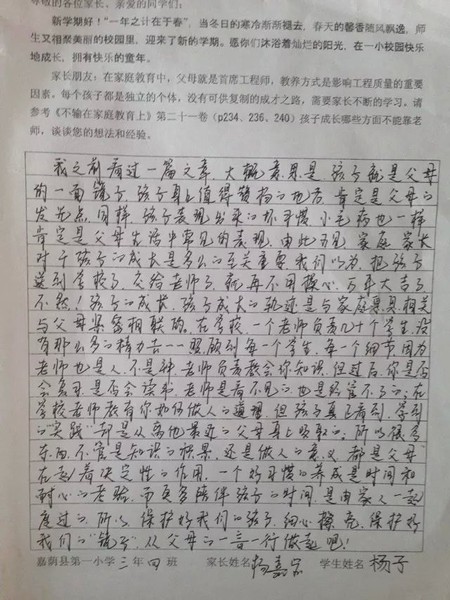 尊敬的各位家长、亲爱的同学们：
新学期好！“一年之计在于春”，当冬日的寒冷渐渐褪去，春天的馨香随风飘逸，师
生又相聚美丽的校园里，迎来了新的学期。愿你们沐浴着灿烂的阳光，在一小校园快乐
地成长，拥有快乐的童年。
家长朋友：在家庭教育中，父母就是首席工程师，教养方式是影响工程质量的重要
因素，每个孩子都是独立的个体，没有可供复制的成才之路，需要家长不断的学习。请
参考《不输在家庭教育上》第二十一卷（p234、236、240）孩子成长哪些方面不能靠老
师，谈谈您的想法和经验。
我之前看过一篇文章，大概意思是孩子就是父母
的一面镜子，孩子身上值得赞扬的地方，肯定是父母的
发光点，同样，孩子表现出来的坏习惯，小毛病也一样
肯定是父母生活中常见的表现，由此可见，家庭，家长
对于孩子的成长是多么的至关重要，我们以为，把孩子
送到学校了，交给老师了，就再不用操心，万事大吉了，
不然！孩子的成长，孩子成长的轨迹是与家庭息息相关
与父母紧密相联的，在学校，一个老师负责几十个学生，没
有那么多的精力去一一照顾到每一个学生，每一个细节，因为
老师也是人，不是神，老师负责教会你知识，但过后，你是否
会复习，是否会读书，老师是看不见的，也是经管不了的；在
学校老师教育你如何做人的道理，但孩子真正看到，学到
的“实践”却是从离他最近的父母身上吸取的；所以很多
东西，不管是知识的积累，还是做人的意义，都是父母
在起着决定性的作用，一个好习惯的养成是时间和
耐心的考验，而更多陪伴孩子的时间是由家人一起
度过的，所以，保护好我们的孩子，细心擦亮，保护好
我们的“镜子”从父母的一言一行做起吧！
嘉荫县第一小学三年四班 家长姓名 学生姓名 杨子